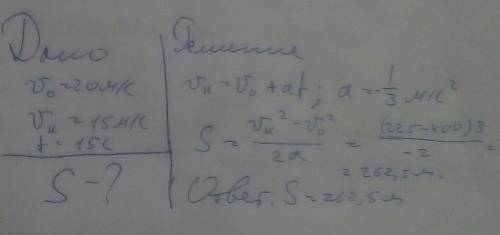 Дано
v₀ = 20 м/с
vк = 15 м/с
t = 15с
S - ?
Решение
vк = v₀ + at; a = -1/3 м/с²
S = (vк² - v₀²)/2a = (225-400)3/-2 =
= 262,5 м.
Ответ. S = 262,5 м